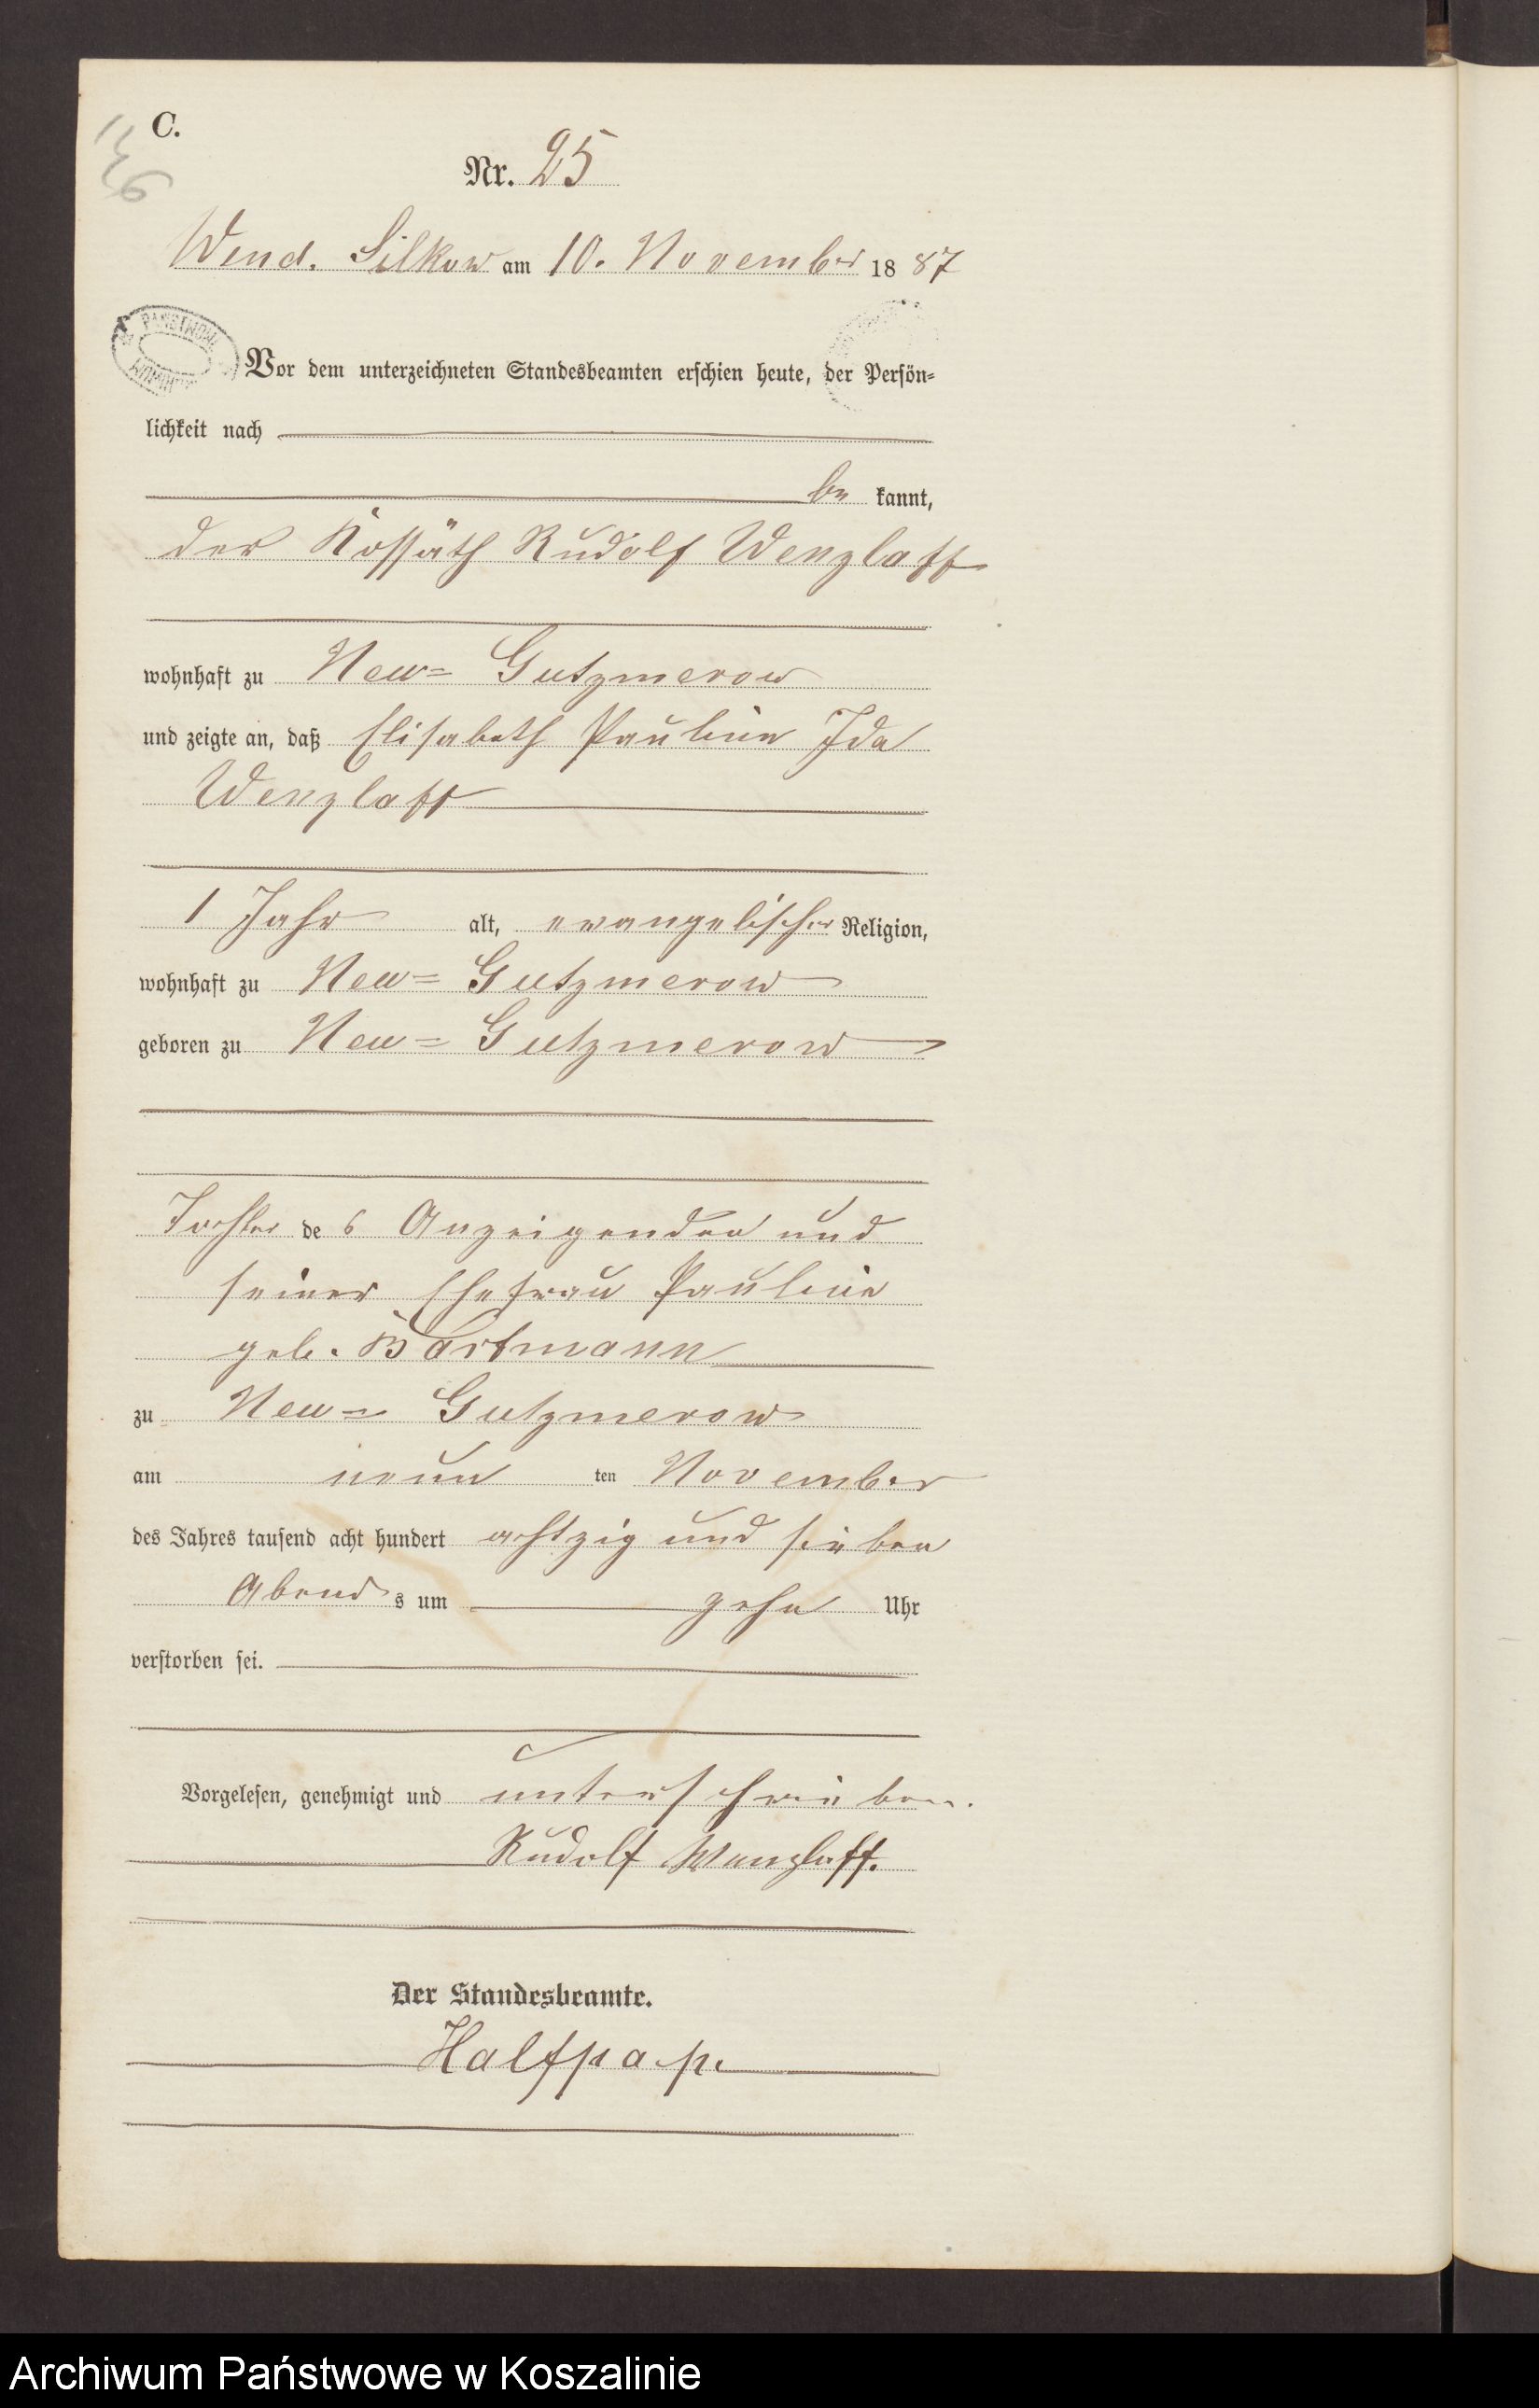 C.
Nr. 25
Wend. Silkow am 10. November 1887
Vor dem unterzeichneten Standesbeamten erschien heute, der Persön-
lichkeit nach
be kannt,
der Kossäth Rudolf Wenzlaff
wohnhaft zu Neu= Gutzmerow
und zeigte an, daß Elisabeth Pauline Ida
Wenzlaff
1 Jahr alt, evangelischer Religion,
wohnhaft zu Neu= Gutzmerow
geboren zu Neu= Gutzmerow
Tochter des Anzeigenden und
seiner Ehefrau Pauline
geb. Bartmann
zu Neu= Gutzmerow
am neun ten November
des Jahres tausend acht hundert achtzig und sieben
Abends um zehn Uhr
verstorben sei.
Vorgelesen, genehmigt und unterschrieben.
Rudolf Wenzlaff.
Der Standesbeamte.
Halfpap.
Archiwum Państwowe w Koszalinie